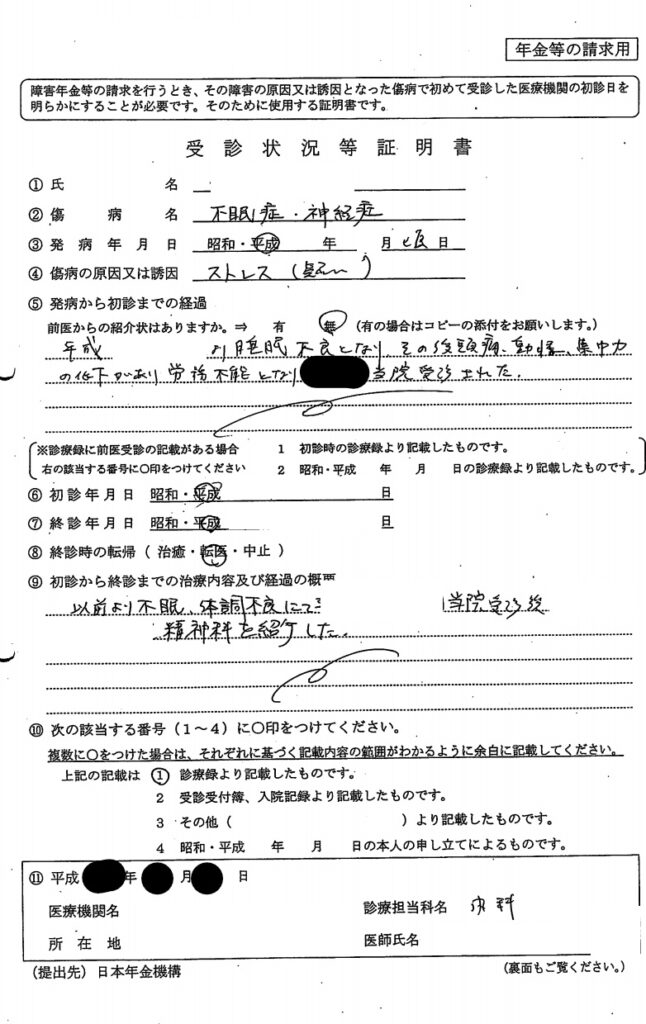 年金等の請求用
障害年金等の請求を行うとき、その障害の原因又は誘因となった傷病で初めて受診した医療機関の初診日を
明らかにすることが必要です。そのために使用する証明書です。
受診状況等証明書
① 氏 名
② 傷 病 名 不眠症・神経症
③ 発病年月日 昭和・平成 年 月 日
④ 傷病の原因又は誘因 ストレス (
⑤ 発病から初診までの経過
前医からの紹介状はありますか。⇒ 有 無 (有の場合はコピーの添付をお願いします。)
平成 より睡眠不良となり その後頭痛、動悸、集中力
の低下があり 労務不能となり 当院受診された。
※診療録に前医受診の記載がある場合 1 初診時の診療録より記載したものです。
右の該当する番号に○印をつけてください 2 昭和・平成 年 月 日の診療録より記載したものです。
⑥ 初診年月日 昭和・平成 日
⑦ 終診年月日 昭和・平成 日
⑧ 終診時の転帰 ( 治癒・転医・中止 )
⑨ 初診から終診までの治療内容及び経過の概要
以前より不眠、体調不良にて 当院受診後
精神科を紹介した。
⑩ 次の該当する番号(1~4)に○印をつけてください。
複数に○をつけた場合は、それぞれに基づく記載内容の範囲がわかるように余白に記載してください。
上記の記載は 1 診療録より記載したものです。
2 受診受付簿、入院記録より記載したものです。
3 その他( )より記載したものです。
4 昭和・平成 年 月 日の本人の申し立てによるものです。
⑪ 平成 年 月 日
医療機関名 診療担当科名 内科
所在地 医師氏名
(提出先)日本年金機構 (裏面もご覧ください。)